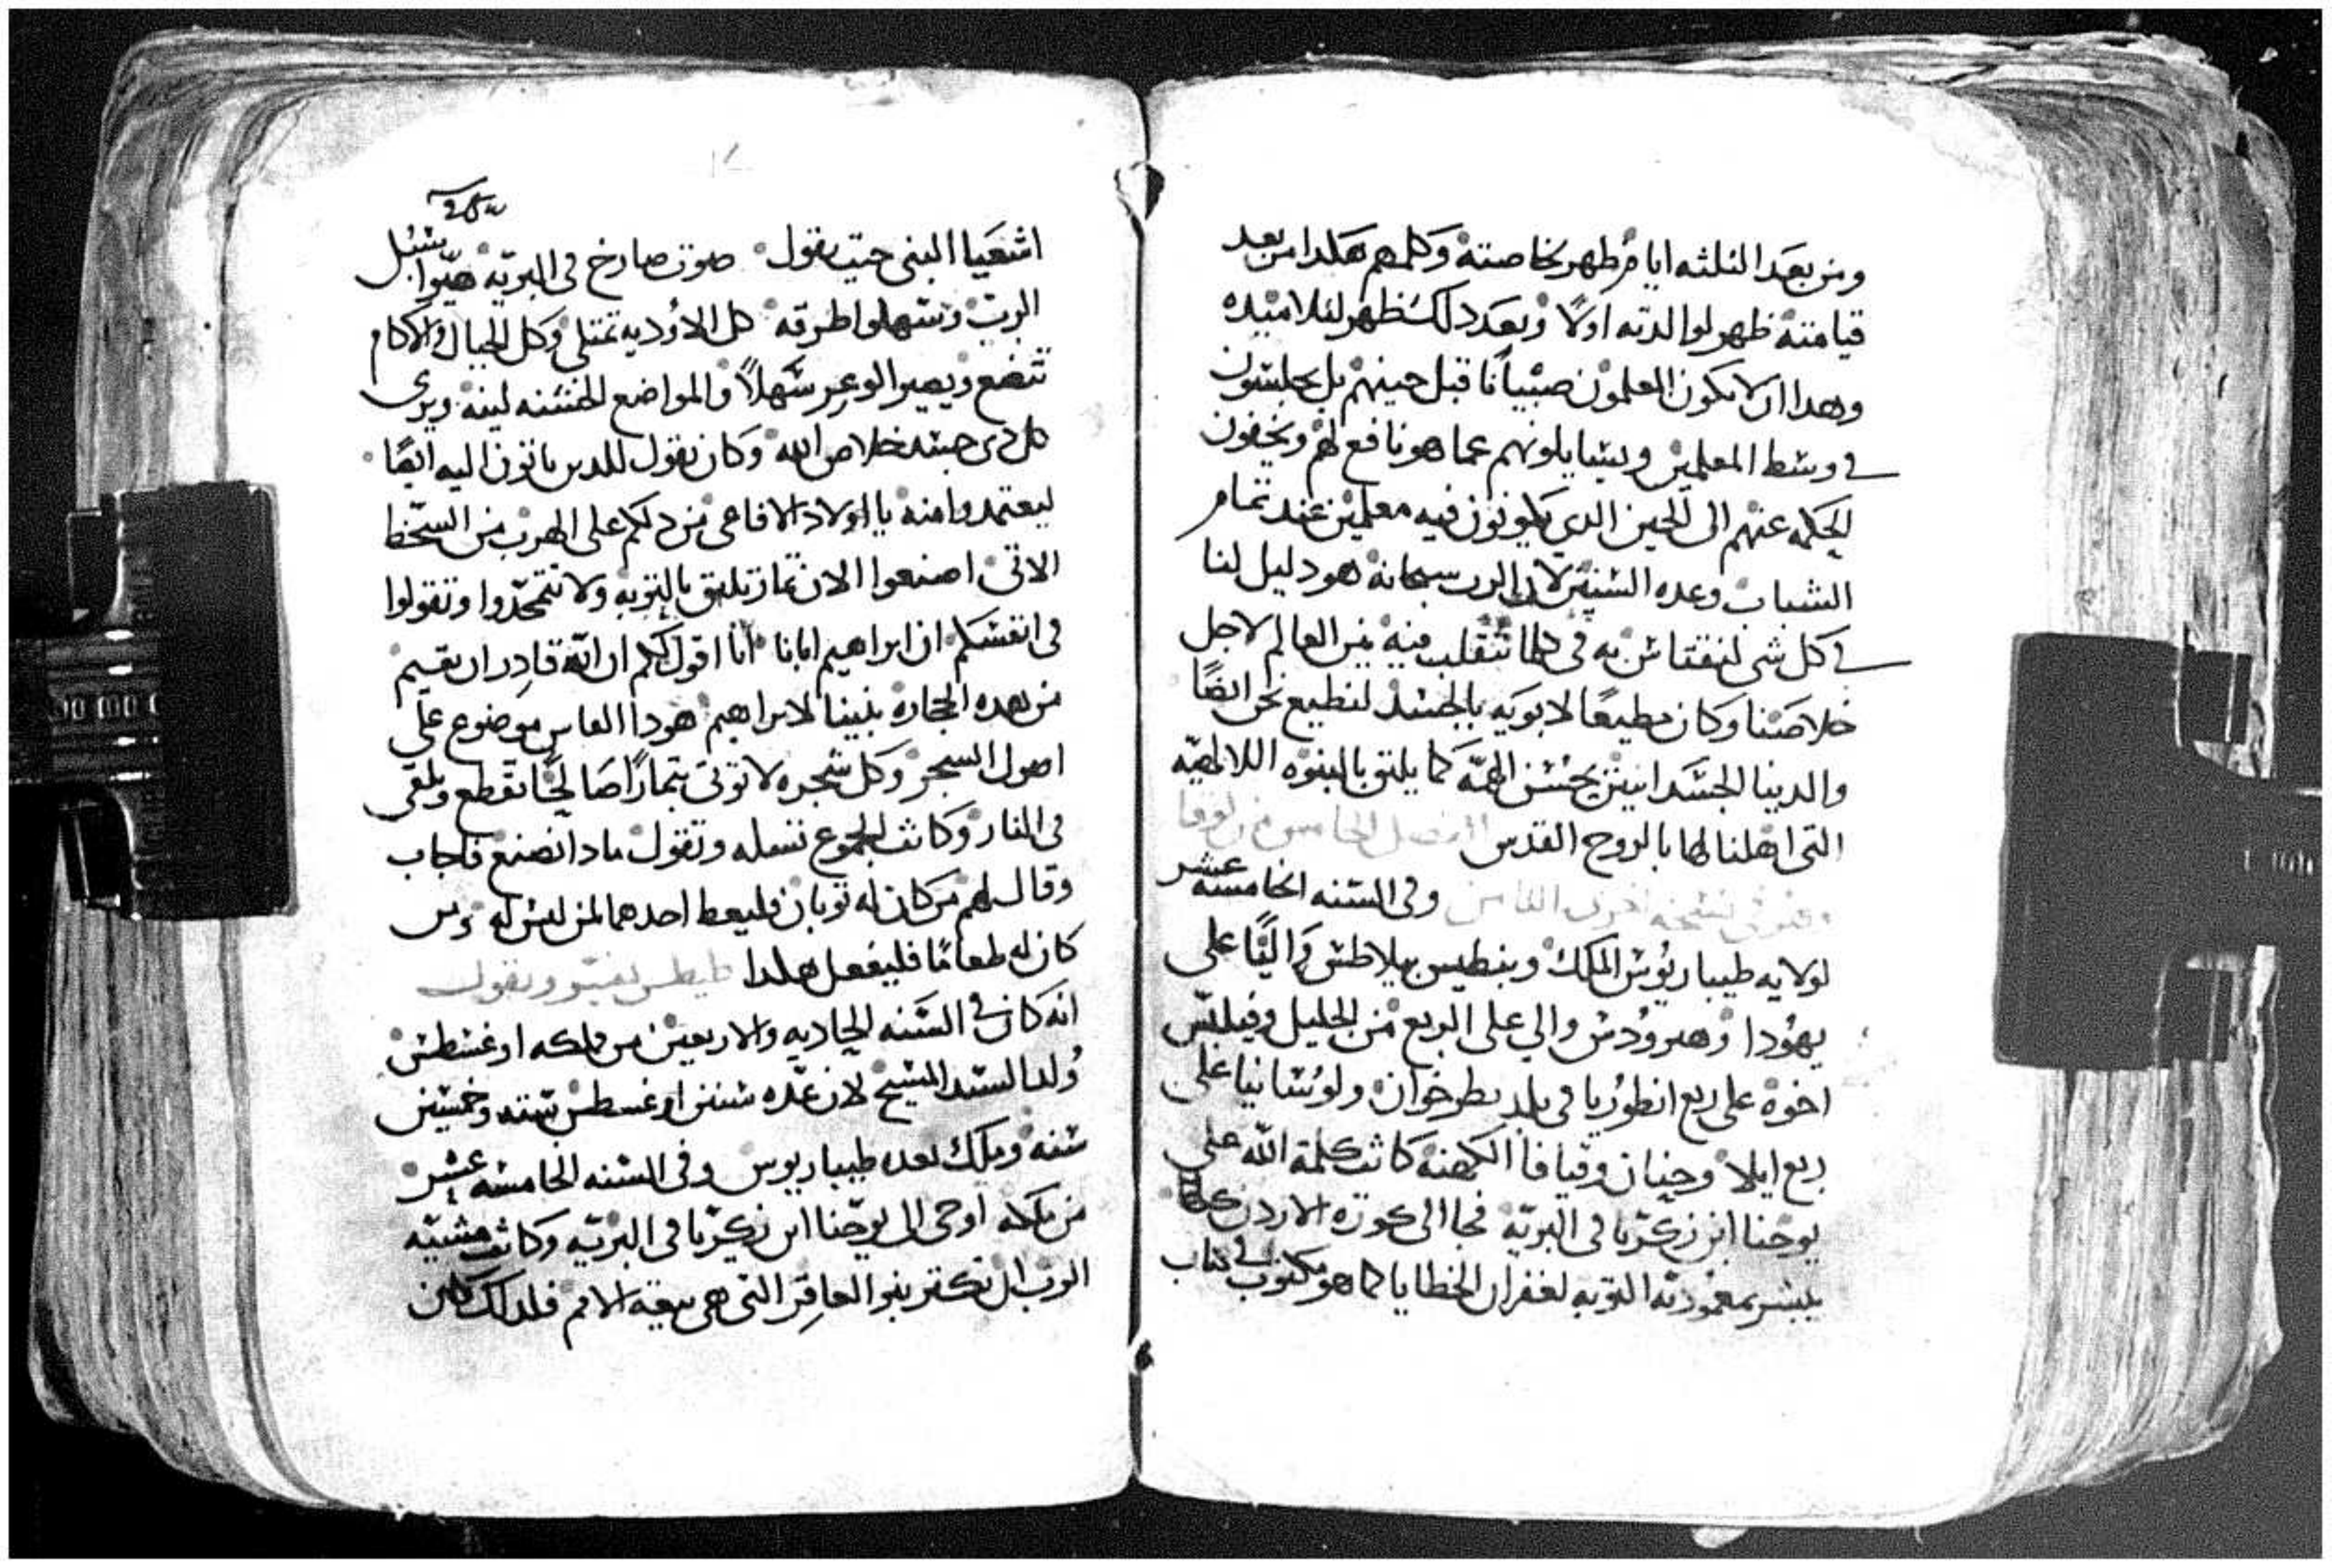 ومن بعد الثلثه ايام ظهر لخاصته وكلهم هكدا من بعد
قيامته ظهر لوالدته اولًا وبعد دلك ظهر لتلاميده
وهدا ان لا يكون المعلمون صبيانًا قبل حينهم بل يجلسون
في وسط المعلمين ويسايلونهم عما هو نافع لهم ويخفون
الحكمه عنهم الى الحين الدي يكونون فيه معلمين عند تمام
الشباب وعده السنين لان الرب سبحانه هو دليل لنا
في كل شي لنقتاس به في كلما تتقلب فيه من العالم لاجل
خلاصنا وكان مطيعًا لابويه بالجسد لنطيع نحن ايضًا
والدينا الجسدانيين بحسن الهمّه كما يليق بالبنوه اللالهيّه
التى اهلنا لها بالروح القدس الفصل الخامس من لوقا
وهو في نسخه اخرى الثامن وفى السنه الخامسه عشر
لولايه طيباريوس الملك وبنطيس بيلاطس واليًا على
يهودا وهيرودس والي على الربع من الجليل وفيلبّس
اخوه على ربع انطوريا في بلد بطرخوان ولوسانيا على
ربع ايلا وحنان وقيافا الكهنه كانت كلمة الله على
يوحنا ابن زكريا في البريّه فجا الى كورة الاردن كلها
يبشر بمعمودية التوبه لغفران الخطايا كما هو مكتوب في كتاب
اشعيا النبى حيث يقول صوت صارخ في البريّه هيّوا سبل
الرب وسهلوا طرقه كل الاوديه تمتلي وكل الجبال والاكام
تتضع ويصير الوعر سهلًا والمواضع الخشنه لينه ويرى
كل دى جسد خلاص الله وكان يقول للدين ياتون اليه ايضًا
ليعتمدوا منه يا اولاد الافاعى من دلكم على الهرب من السخط
الاتى اصنعوا الان ثمار تليق بالتوبه ولا تتمجّدوا وتقولوا
فى انفسكم ان ابراهيم ابانا انا اقول لكم ان الله قادر ان يقيم
من هده الحجاره بنينا لابراهيم هودا الفاس موضوع على
اصول الشجر وكل شجره لا توتى ثمارًا صالحًا تقطع وتلقى
فى النار وكانت الجموع تسله وتقول مادا نصنع فاجاب
وقال لهم من كان له ثوبان فليعط احدهما لمن ليس له ومن
كان له طعامًا فليفعل هكدا طيطس يفسّر ويقول
انه كان في السنه الحاديه والاربعين من ملكه اوغسطس
وُلد السيد المسيح لان عدّه سنين اوغسطس سته وخمسين
سنه وملك بعده طيباريوس وفى السنه الخامسه عشر
من ملكه اوحى الى يوحنا ابن زكريا فى البريّه وكانت مشيّه
الرب ان تكتر بنو العاقر التى هى بيعة الامم فلدلك كان